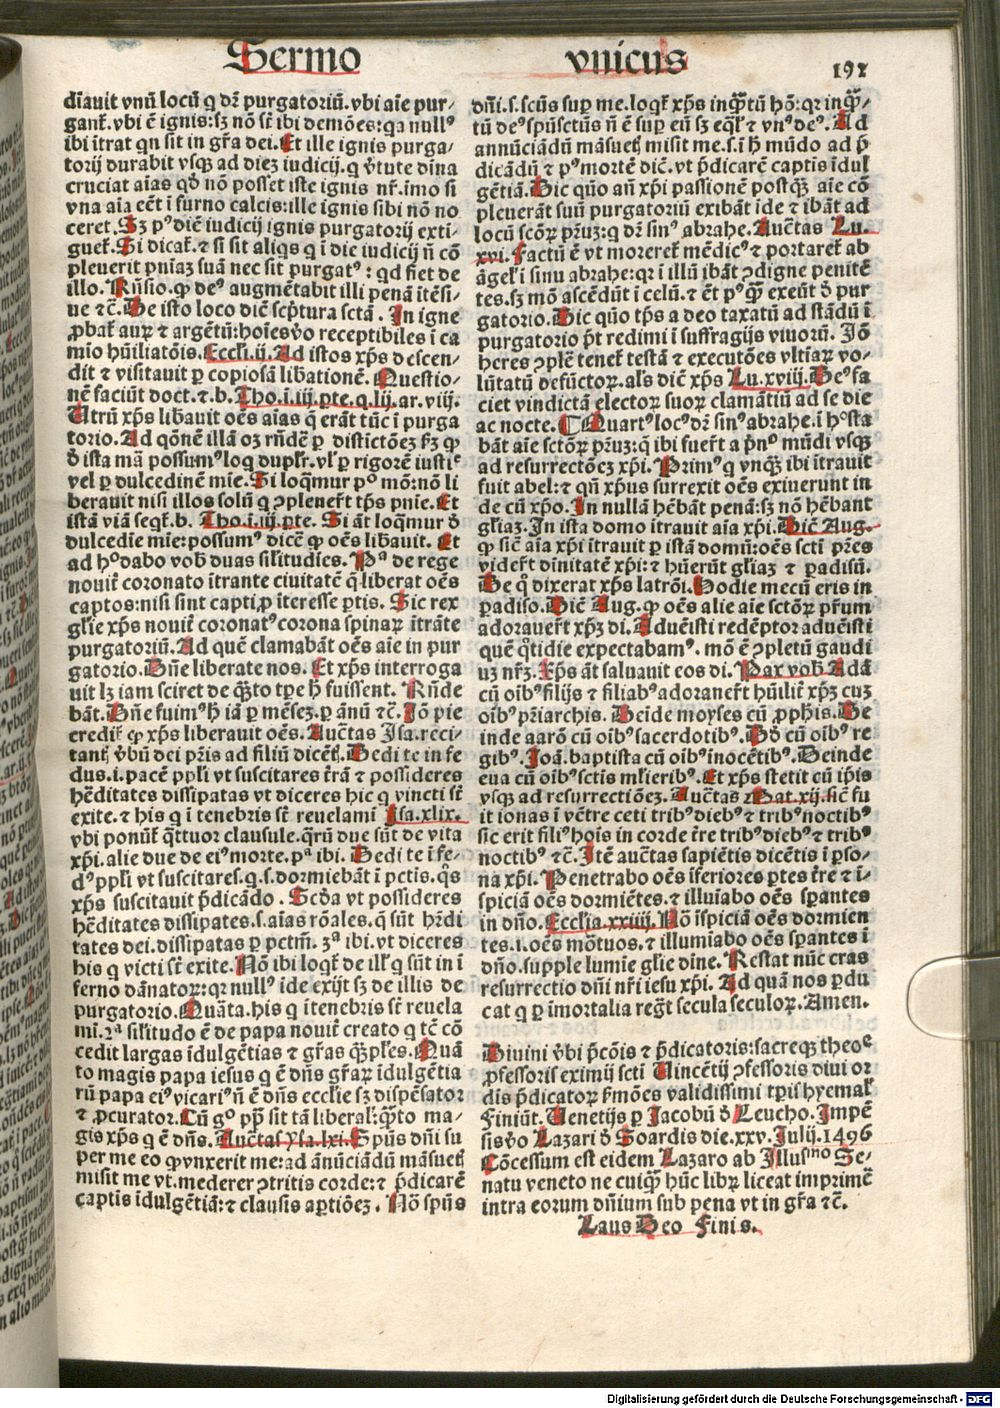 Sermo vnicus 191
diauit vnū locū q dr̄ purgatoriū. vbi aīe pur-
gant̄. vbi ē ignis: sꝫ nō st̄ ibi demōes: qa null⁹
ibi ītrat qn sit in gr̄a dei. Et ille ignis purga-
torij durabit vsqꝫ ad diez iudicij. q v̄tute dīna
cruciat aīas qd̓ nō posset iste ignis nr̄. imo si
vna aīa cēt ī furno calcis: ille ignis sibi nō no
ceret. Sꝫ p⁹ diē iudicij ignis purgatorij exti-
guet̄. Si dicat̄. ⁊ si sit aliqs q ī die iudicij ñ cō
pleuerit pn̄iaꝫ suā nec sit purgat⁹: qd fiet de
illo. Rn̄sio. ꝙ de⁹ augmētabit illi penā ītēsi-
ue ⁊c̄. De isto loco diē scp̄tura sctā. In igne
ꝓbat̄ auꝝ ⁊ argētū: hoīes v̓o receptibiles ī ca
mīo hūiliatōis. Eccłi. ij. Ad istos xp̄s descen-
dit ⁊ visitauit ꝑ copiosā libationē. Questio-
nē faciūt doct. ⁊ b. Tho. i. iij. pte. q. lij. ar. viij.
Utrū xp̄s libauit oēs aīas q erāt tūc ī purga
torio. Ad qōnē illā oꝫ rn̄dē ꝑ distictōeꝫ sꝫ ꝙ
d̓ ista mā possum⁹ loq duplr̄. vl̓ ꝑ rigorē iusti⁹
vel ꝑ dulcedinē mīe. Si loqmur p⁰ mō: nō li
berauit nisi illos solū q ꝯpleuer̄t tp̄s pnīe. Et
istā viā seqt̄. b. Tho. i. iij. pte. Si āt loqmur d̓
dulcedīe mīe: possum⁹ dicē ꝙ oēs libauit. Et
ad h⁰ dabo vob̄ duas silītudīes. Pᵃ de rege
nouit̄ coronato ītrante ciuitatē q̄ liberat oēs
captos: nisi sint capti ꝓ īteresse ꝑtis. Sic rex
glīe xp̄s nouit̄ coronat⁹ corona spinaꝝ ītrāte
purgatoriū. Ad quē clamabāt oēs aīe in pur
gatorio. Dn̄e liberate nos. Et xp̄s interroga
uit lꝫ iam sciret de q̄ꝫto tp̄e h̄ fuissent. Rn̄de
bāt. Dn̄e fuim⁹ h̄ iā ꝑ mēseꝫ. ꝑ ānū ⁊c̄. Iō pie
credit̄ ꝙ xp̄s liberauit oēs. Auc̄tas Isa. reci-
tant̄ v̓bū dei pr̄is ad filiū dicēt̄. Dedi te in fe
dus. i. pacē pp̄łi vt suscitares tr̄ā ⁊ possideres
hēditates dissipatas vt diceres hic q vincti st̄
exite. ⁊ his q ī tenebris st̄ reuelamī Isa. xlix.
vbi ponūt̄ q̄ttuor clausule. qrū due sūt de vita
xp̄i. alie due de ei⁹ morte. pᵃ ibi. Dedi te ī fe-
d⁹ pp̄łi vt suscitares. q. s. dormiebāt ī pctis. qs
xp̄s suscitauit p̄dicādo. Scd̓a vt possideres
hēditates dissipates. s. aīas rōales. q̄ sūt hr̄di
tates dei. dissipatas ꝑ pctm̄. 3ᵃ ibi. vt diceres
his q victi st̄ exite. Nō ibi loqt̄ de illꝭ q sūt in ī
ferno dānatoꝝ: qꝛ null⁹ īde exijt sꝫ de illis de
purgatorio. Quārta. his q ī tenebris st̄ reuela
mī. 2ᵃ silītudo ē de papa nouit̄ creato q tc̄ cō
cedit largas īdulgētias ⁊ gr̄as q̄ꝫples. Quā
to magis papa iesus q ē dn̄s gr̄aꝝ īdulgētia
rū papa ei⁹ vicari⁹ ñ ē dn̄s ecclīe sꝫ dispēsator
⁊ ꝓcurator. Cū g⁰ pp̄ sit tā liberal̓: q̄ꝫto ma-
gis xp̄s q ē dn̄s. Auc̄tas ysa. lxi. Spūs dn̄i su
per me eo ꝙ vnxerit me: ad ānūciādū māsuet̄
misit me vt. mederer ꝯtritis corde: ⁊ p̄dicarē
captis īdulgētiā: ⁊ clausis aꝑtiōeꝫ. Nō spūs
dn̄i. s. scūs suꝑ me. loqt̄ xp̄s inq̄ꝫtū hō: qꝛ inq̄ꝫ-
tū de⁹ spūsctūs ñ ē suꝑ eū sꝫ eql̓ ⁊ vn⁹ de⁹. Ad
annūciādū māsuet̄ misit me. s. i h̄ mūdo ad p̄
dicādū ⁊ p⁹ mortē diē. vt p̄dicarē captis īdul
gētiā. Hic qn̄o añ xp̄i passionē postqꝫ aīe cō
pleuerāt suū purgatoriū exibāt īde ⁊ ibāt ad
locū scōꝝ pr̄uꝫ: q dr̄ sin⁹ abrahe. Auc̄tas Lu.
xvi. Factū ē vt moreret̄ mēdic⁹ ⁊ portaret̄ ab
āgel̓ ī sinu abrahe: qꝛ ī illū ibāt ꝯdigne penitē
tes. sꝫ mō ascēdūt ī celū. ⁊ ēt p⁹ qꝫ exeūt d̓ pur
gatorio. Hic qn̄o tp̄s a deo taxatū ad stādū ī
purgatorio pt̄ redimi ī suffragijs viuoꝝ. Iō
heres ꝯplē tenet̄ testā ⁊ executōes vltīaꝝ vo-
lūtatū defūctoꝝ. als̄ diē xp̄s Lu. xviij. De⁹ fa
ciet vindictā electoꝝ suoꝝ clamātiū ad se die
ac nocte. ¶ Quart⁹ loc⁹ dr̄ sin⁹ abrahe. ī h⁰ sta
bāt aīe sctōꝝ pr̄uꝫ: q ibi fuer̄t a p̄n⁰ mūdi vsqꝫ
ad resurrectōeꝫ xp̄i. Prim⁹ q vnqꝫ ibi ītrauit
fuit abel: ⁊ qn̄ xp̄us surrexit oēs exiuerunt in
de cū xp̄o. In nullā hēbāt penā: sꝫ nō hēbant
gl̓iaꝫ. In ista domo ītrauit aīa xp̄i. Diē Aug.
ꝙ sic̄ aīa xp̄i ītrauit ꝑ istā domū: oēs scti pr̄es
vider̄t dīnitatē xp̄i: ⁊ hūer̄t gl̓iaꝫ ⁊ padisū.
De q̓ dixerat xp̄s latrōi. Hodie mecū eris in
padiso. Diē Aug. ꝙ oēs alie aīe sctōꝝ pr̄um
adorauer̄t xp̄ꝫ di. Aduēisti redēptor aduēisti
quē q̄tidie expectabam⁹. mō ē ꝯpletū gaudi
uꝫ nr̄ꝫ. Xp̄s āt saluauit eos di. Pax vob̄. Adā
cū oib⁹ filijs ⁊ filiab⁹ adorauer̄t hūil̓it̄ xp̄ꝫ cuꝫ
oib⁹ pr̄iarchis. Deīde moyses cū ꝓph̄is. De
inde aarō cū oib⁹ sacerdotib⁹. Dd̓ cū oib⁹ re
gib⁹. Ioā. baptista cū oib⁹ inocētib⁹. Deinde
eua cū oib⁹ sctis ml̓ierib⁹. Et xp̄s stetit cū ip̄is
vsqꝫ ad resurrectiōeꝫ. Auc̄tas Mat. xij. sic̄ fu
it ionas ī vētre ceti trib⁹ dieb⁹ ⁊ trib⁹ noctib⁹
sic erit fili⁹ hoīs in corde tr̄e trib⁹ dieb⁹ ⁊ trib⁹
noctib⁹ ⁊c̄. Itē auc̄tas sapiētis dicētis ī ꝑso-
na xp̄i. Penetrabo oēs īferiores ꝑtes tr̄e ⁊ ī-
spiciā oēs dormiētes. ⁊ illuīabo oēs sꝑantes
in dn̄o. Eccłīa. xxiiij. Nō īspiciā oēs dormien
tes. i. oēs mōtuos. ⁊ illumiabo oēs sꝑantes ī
dn̄o. supple lumīe gl̓ie dīne. Restat nūc cras
resurrectio dn̄i nr̄i iesu xp̄i. Ad quā nos ꝑdu
cat q ꝑ īmortalia regt̄ secula seculoꝝ. Amen.
Diuini v̓bi p̄cōis ⁊ p̄dicatoris: sacreqꝫ theo⁽ᵉ⁾
ꝓfessoris eximij scti Uincētij ꝯfessoris diui or
dis p̄dicatoꝝ s̓mōes validissimi tp̄is hyemal̓
Finiūt. Uenetijs ꝑ Jacobū d̓ Leucho. Impē
sis v̓o Lazari d̓ Soardis die. xxv. Julij. 1496
Cōcessum est eidem Lazaro ab Illusᵐᵒ Se-
natu veneto ne cuiqꝫ hūc libꝝ liceat imprimē
intra eorum dn̄ium sub pena vt in gr̄a ⁊c̄.
Laus Deo Finis.
Digitalisierung gefördert durch die Deutsche Forschungsgemeinschaft - DFG